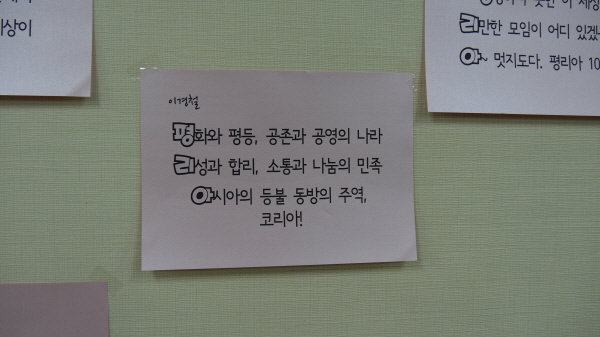 이경철
평화와 평등, 공존과 공영의 나라
리성과 합리, 소통과 나눔의 민족
아시아의 등불 동방의 주역,
코리아!
리만한 모임이 어디 있겠
아~ 멋지도다. 평리아 10